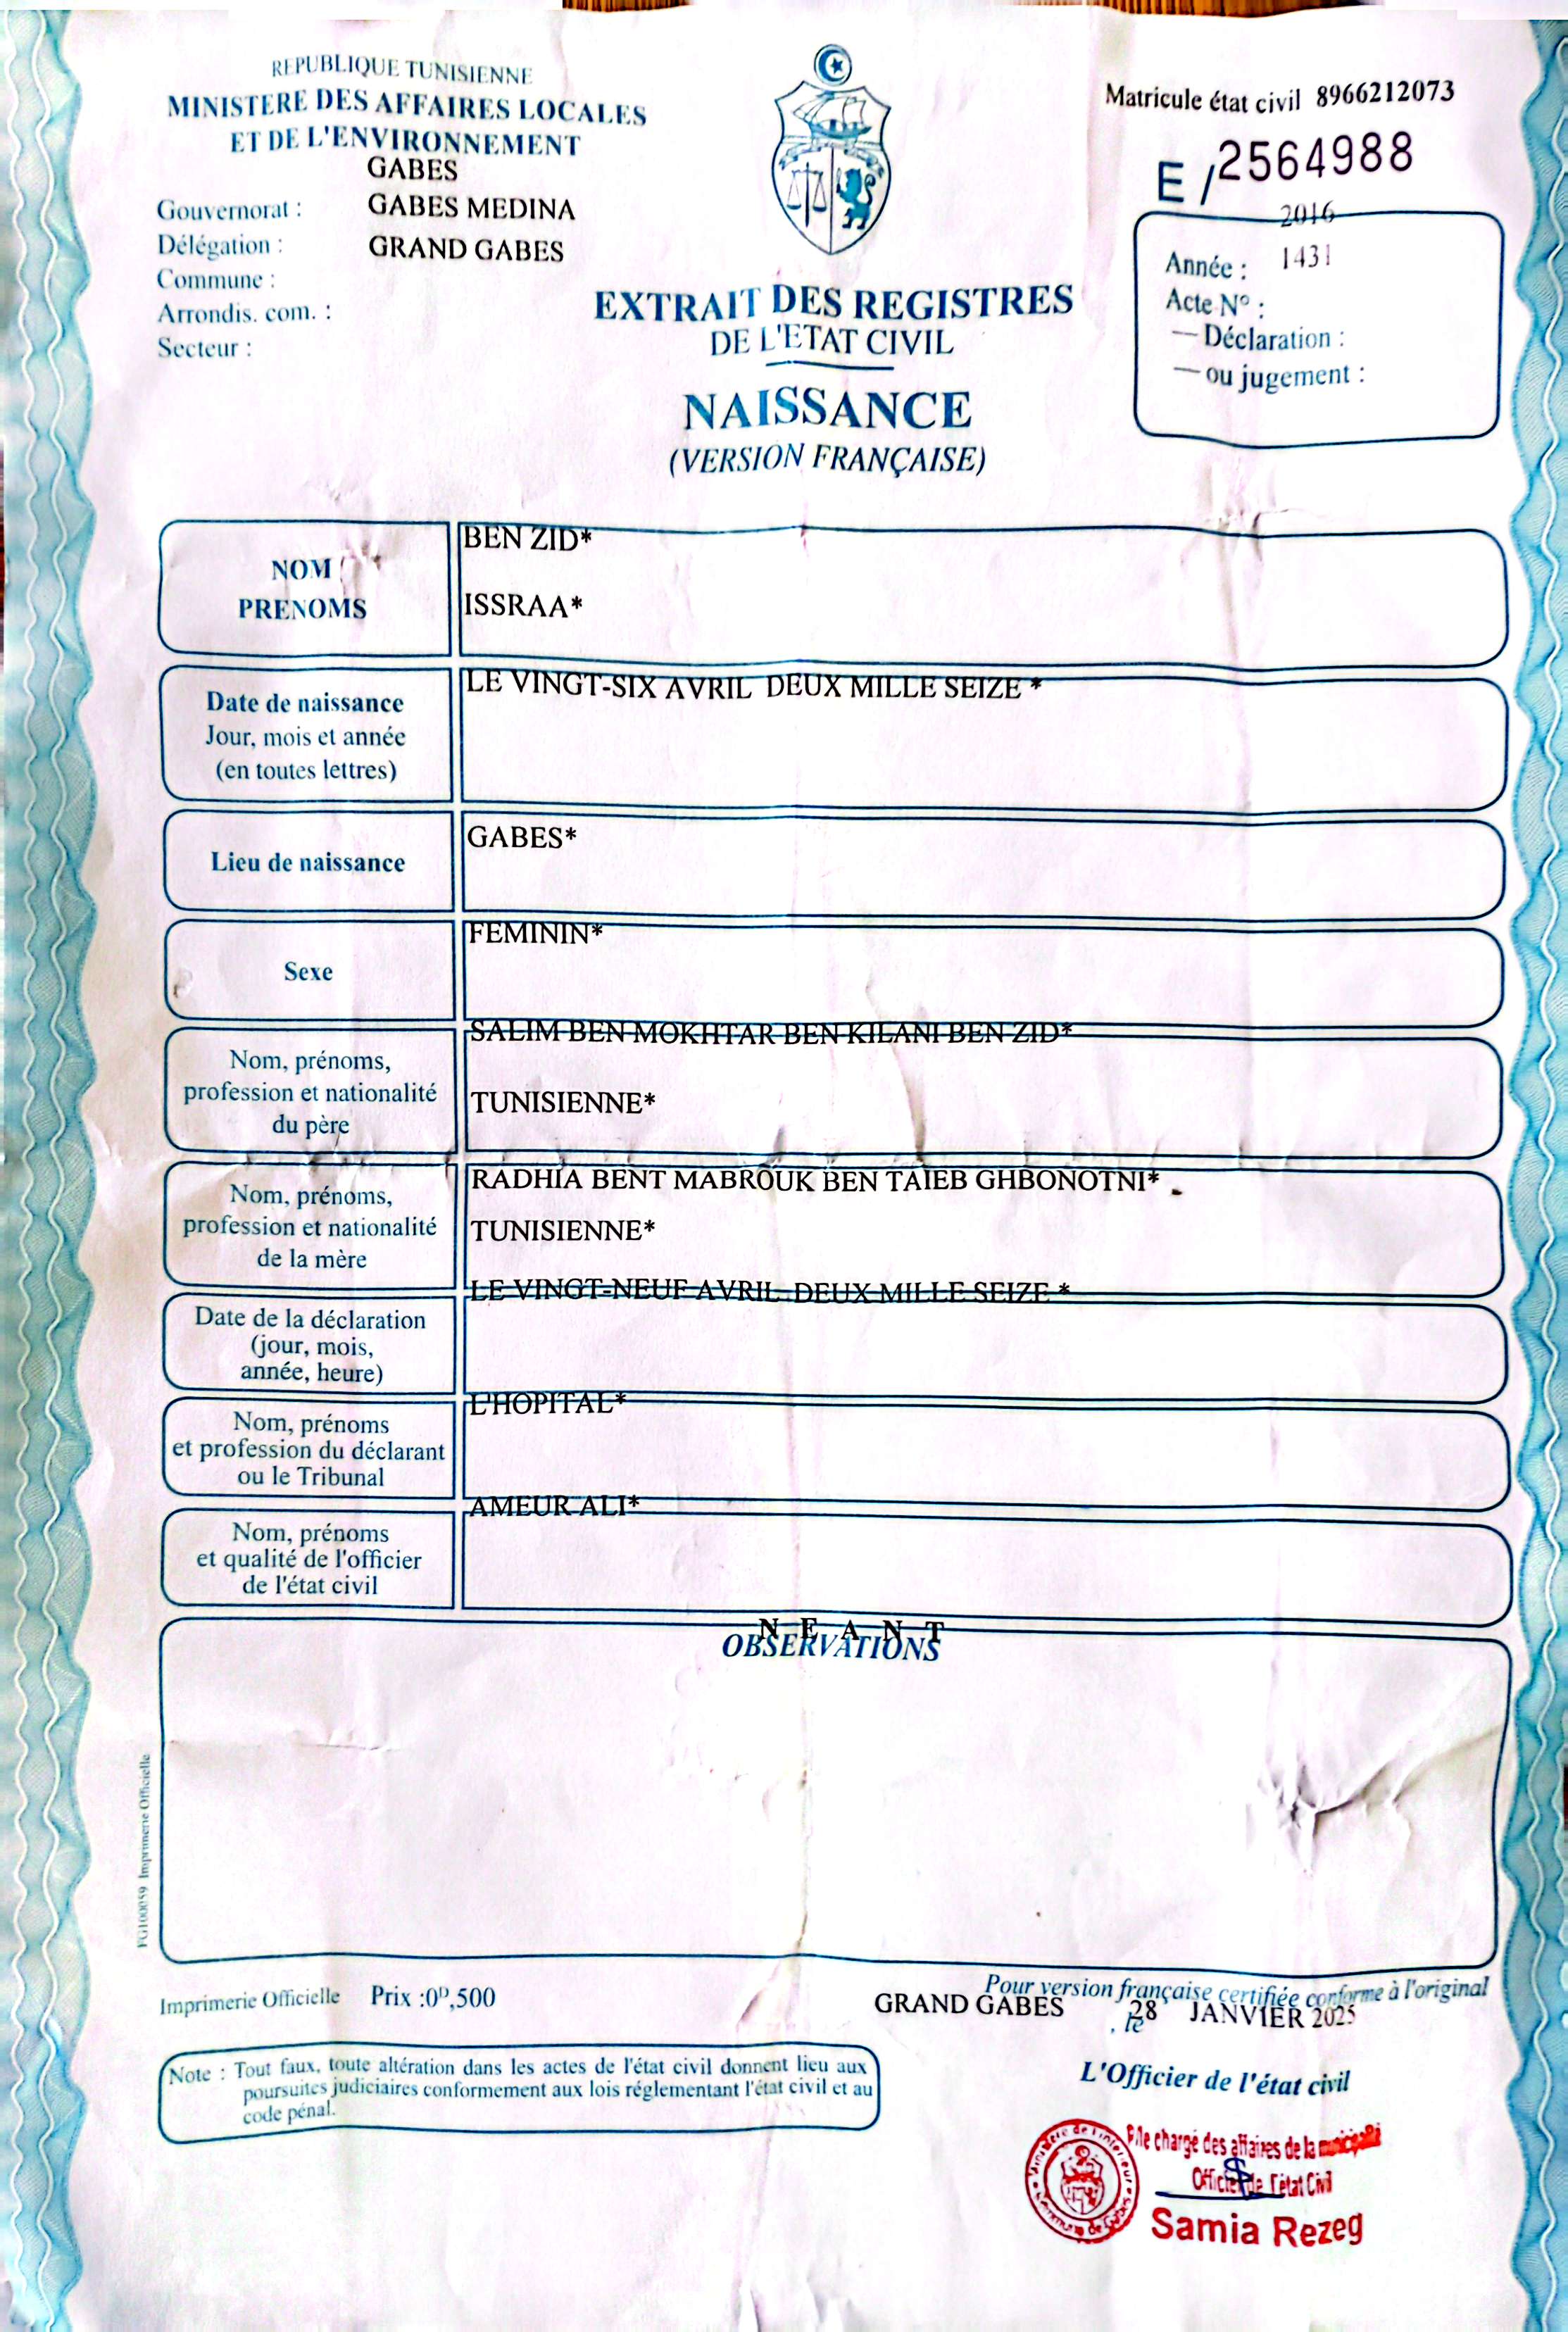 REPUBLIQUE TUNISIENNE
MINISTERE DES AFFAIRES LOCALES
ET DE L'ENVIRONNEMENT
GABES
Gouvernorat : GABES MEDINA
Délégation : GRAND GABES
Commune :
Arrondis. com. :
Secteur :
Matricule état civil 8966212073
E / 2564988
2016
Année : 1431
Acte N° :
— Déclaration :
— ou jugement :
EXTRAIT DES REGISTRES
DE L'ETAT CIVIL
NAISSANCE
(VERSION FRANÇAISE)
NOM
PRENOMS
BEN ZID*
ISSRAA*
Date de naissance
Jour, mois et année
(en toutes lettres)
LE VINGT-SIX AVRIL DEUX MILLE SEIZE *
Lieu de naissance
GABES*
Sexe
FEMININ*
Nom, prénoms,
profession et nationalité
du père
SALIM BEN MOKHTAR BEN KILANI BEN ZID*
TUNISIENNE*
Nom, prénoms,
profession et nationalité
de la mère
RADHIA BENT MABROUK BEN TAIEB GHBONOTNI*
TUNISIENNE*
Date de la déclaration
(jour, mois,
année, heure)
LE VINGT-NEUF AVRIL DEUX MILLE SEIZE *
Nom, prénoms
et profession du déclarant
ou le Tribunal
L'HOPITAL*
Nom, prénoms
et qualité de l'officier
de l'état civil
AMEUR ALI*
N E A N T
OBSERVATIONS
FG100059 Imprimerie Officielle
Imprimerie Officielle Prix :0D,500
Pour version française certifiée conforme à l'original
GRAND GABES , le 28 JANVIER 2025
Note : Tout faux, toute altération dans les actes de l'état civil donnent lieu aux
poursuites judiciaires conformement aux lois réglementant l'état civil et au
code pénal.
L'Officier de l'état civil
P/le chargé des affaires de la municipalité
Officier de l'état Civil
Samia Rezeg
Ministère de l'Intérieur
Commune de Gabes